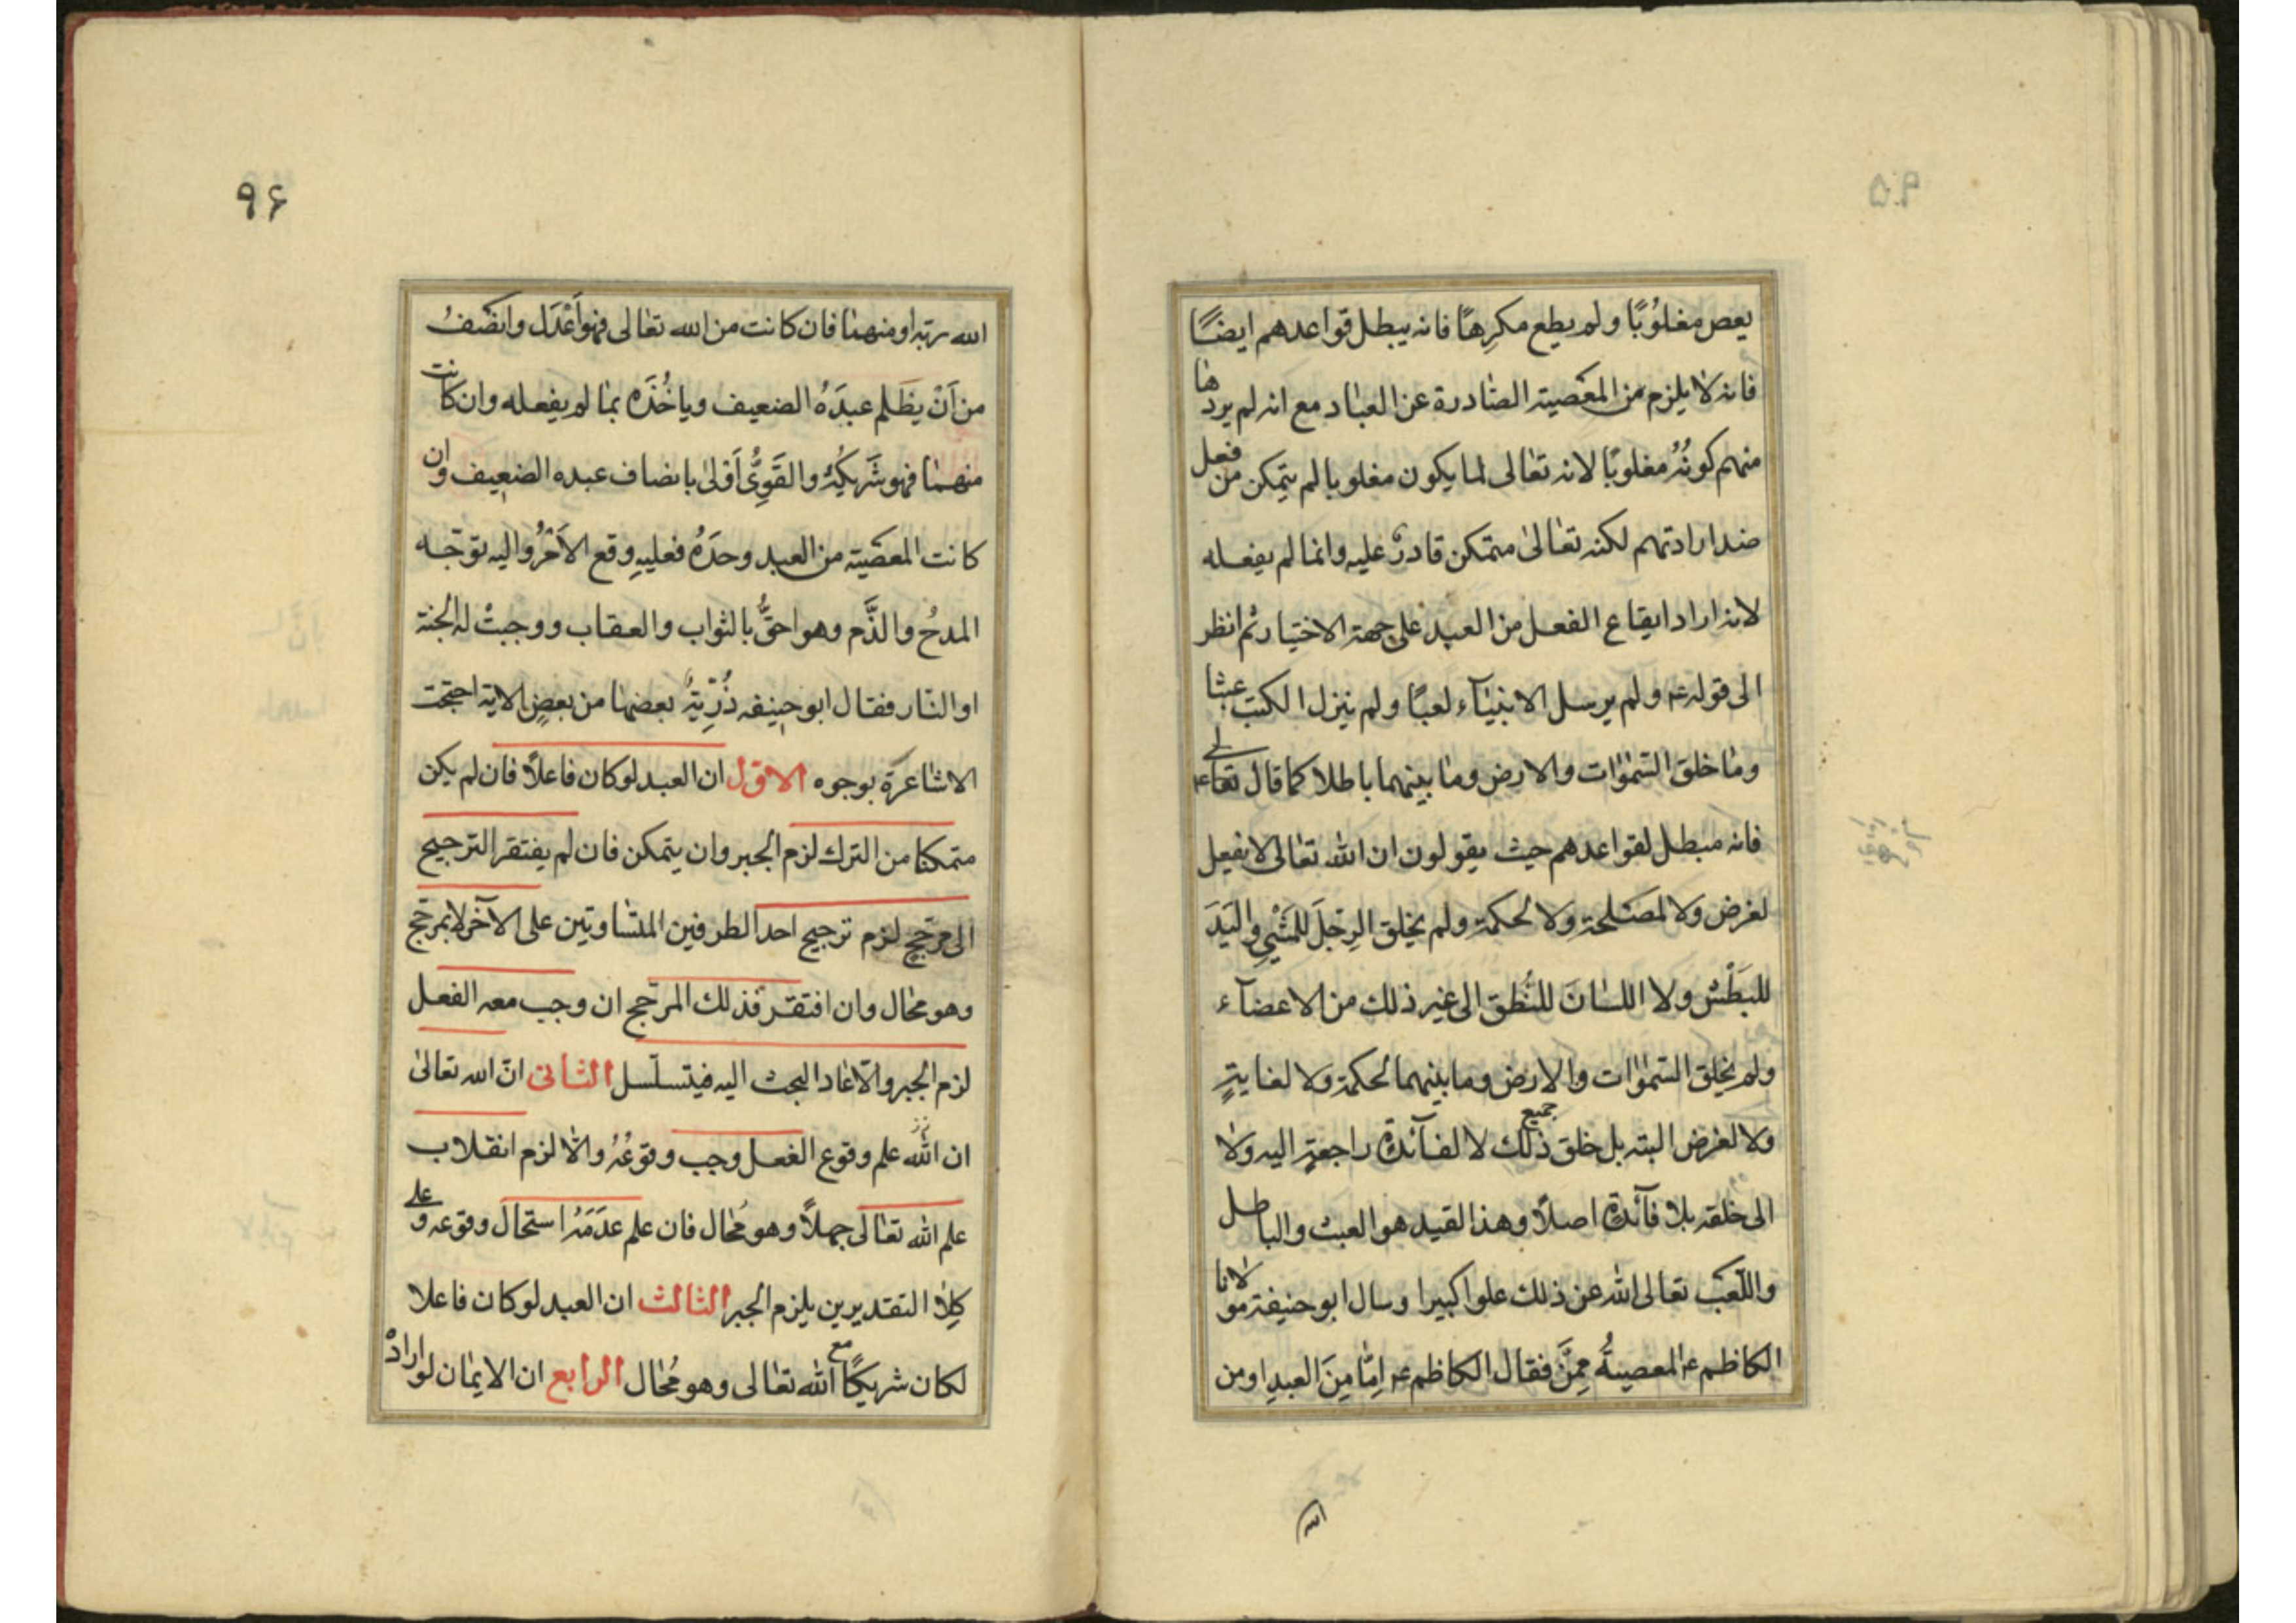 يعص مغلُوبًا ولم يطع مكرِهًا فانه يبطل قواعدهم ايضًا
فانه لا يلزم من المعصية الصّادرة عن العباد مع انه لم يردها
منهم كونُهُ مغلوبًا لانه تعالى لما يكون مغلوبا لم يتمكن من فعل
ضد ارادتهم لكنه تعالىٰ متمكن قادرٌ عليه وانما لم يفعله
لانه اراد ايقاع الفعل من العبد على جهة الاختيار ثم انظر
الى قوله ع ولم يرسل الانبيآء لعبًا ولم ينزل الكتب عبثا
وما خلق السّمٰوات والارض وما بينهما باطلا كما قال تعالى
فانه مبطل لقواعدهم حيث يقولون ان الله تعالى لا يفعل
لغرض ولا لمصلحة ولا لحكمة ولم يخلق الرِجلَ للمَشْيِ واليَدَ
للبَطْش ولا اللسانَ للنُطق الى غير ذلك من الاعضآء
ولم يخلق السّمٰوات والارض وما بينهما لحكمة ولا لغايةٍ
ولا لغرض البته بل خلق جميع ذلك لا لفآئدة راجعةٍ اليه ولا
الى خلقه بلا فآئدة اصلًا وهذا القيد هو العبث والباطل
واللّعب تعالى الله عن ذلك علوا كبيرا وسال ابو حنيفة مولانا
الكاظم ع المعصيةُ مِمَّن فقال الكاظم ع اِمّا مِنَ العبدِ او من
الله
٩۶
الله ربّه او منهما فان كانت من الله تعالى فهو اَعْدَل وانصفُ
من اَنْ يظلم عبدَهُ الضعيف وياخُذَه بما لم يفعله وان كانت
منهما فهو شَريكُهُ والقَوِىُّ اَوْلىٰ بانصاف عبده الضعيف وان
كانت المعصية من العبد وحدَهُ فعليهِ وقع الاَمْرُ واليه توجّه
المدحُ والذَّم وهو احقُّ بالثواب والعقاب ووجبتْ له الجنة
او النّار فقال ابو حنيفه ذُرِّيّةً بعضها من بعضٍ الاية احتجت
الاشاعرة بوجوه الاوّل ان العبد لو كان فاعلًا فان لم يكن
متمكنا من الترك لزم الجبر وان يتمكن فان لم يفتقر الترجيح
الى مرجّحٍ لزم ترجيح احد الطرفين المتساويتين على الآخر لا بمرجّح
وهو محال وان افتقر فذلك المرجّح ان وجب معه الفعل
لزم الجبر والّا عاد البحث اليه فيتسلسل الثانى انّ الله تعالىٰ
ان الله علم وقوع الفعل وجب وقوعُهُ والّا لزم انقلاب
علم الله تعالى جهلاً وهو مُحال فان علم عدَمَهُ استحال وقوعه وعلى
كِلا التقديرين يلزم الجبر الثالث ان العبد لو كان فاعلا
لكان شريكًا مع الله تعالى وهو مُحال الرابع ان الايمان لو ارادهُ